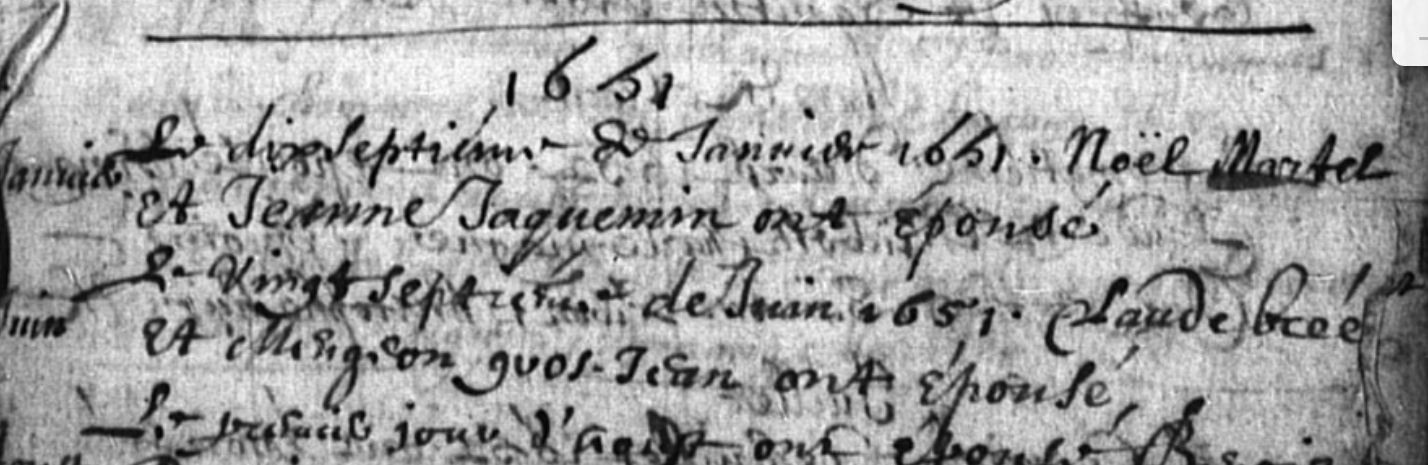 1651
Janvier Le dixseptiéme de Janvier 1651. Noël Martel
et Jeanne Jaquemin ont épousé
Juin Le Vingtseptiéme de Juin 1651. Claude
et Mengeon gros-Jean ont épousé
Le premier jour d'aoust ont épousé